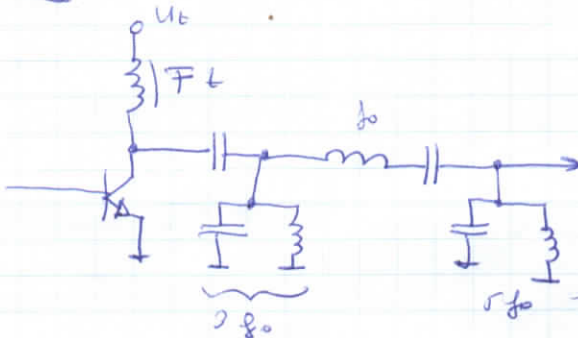 Ut
Ft
f₀
f₀
5f₀